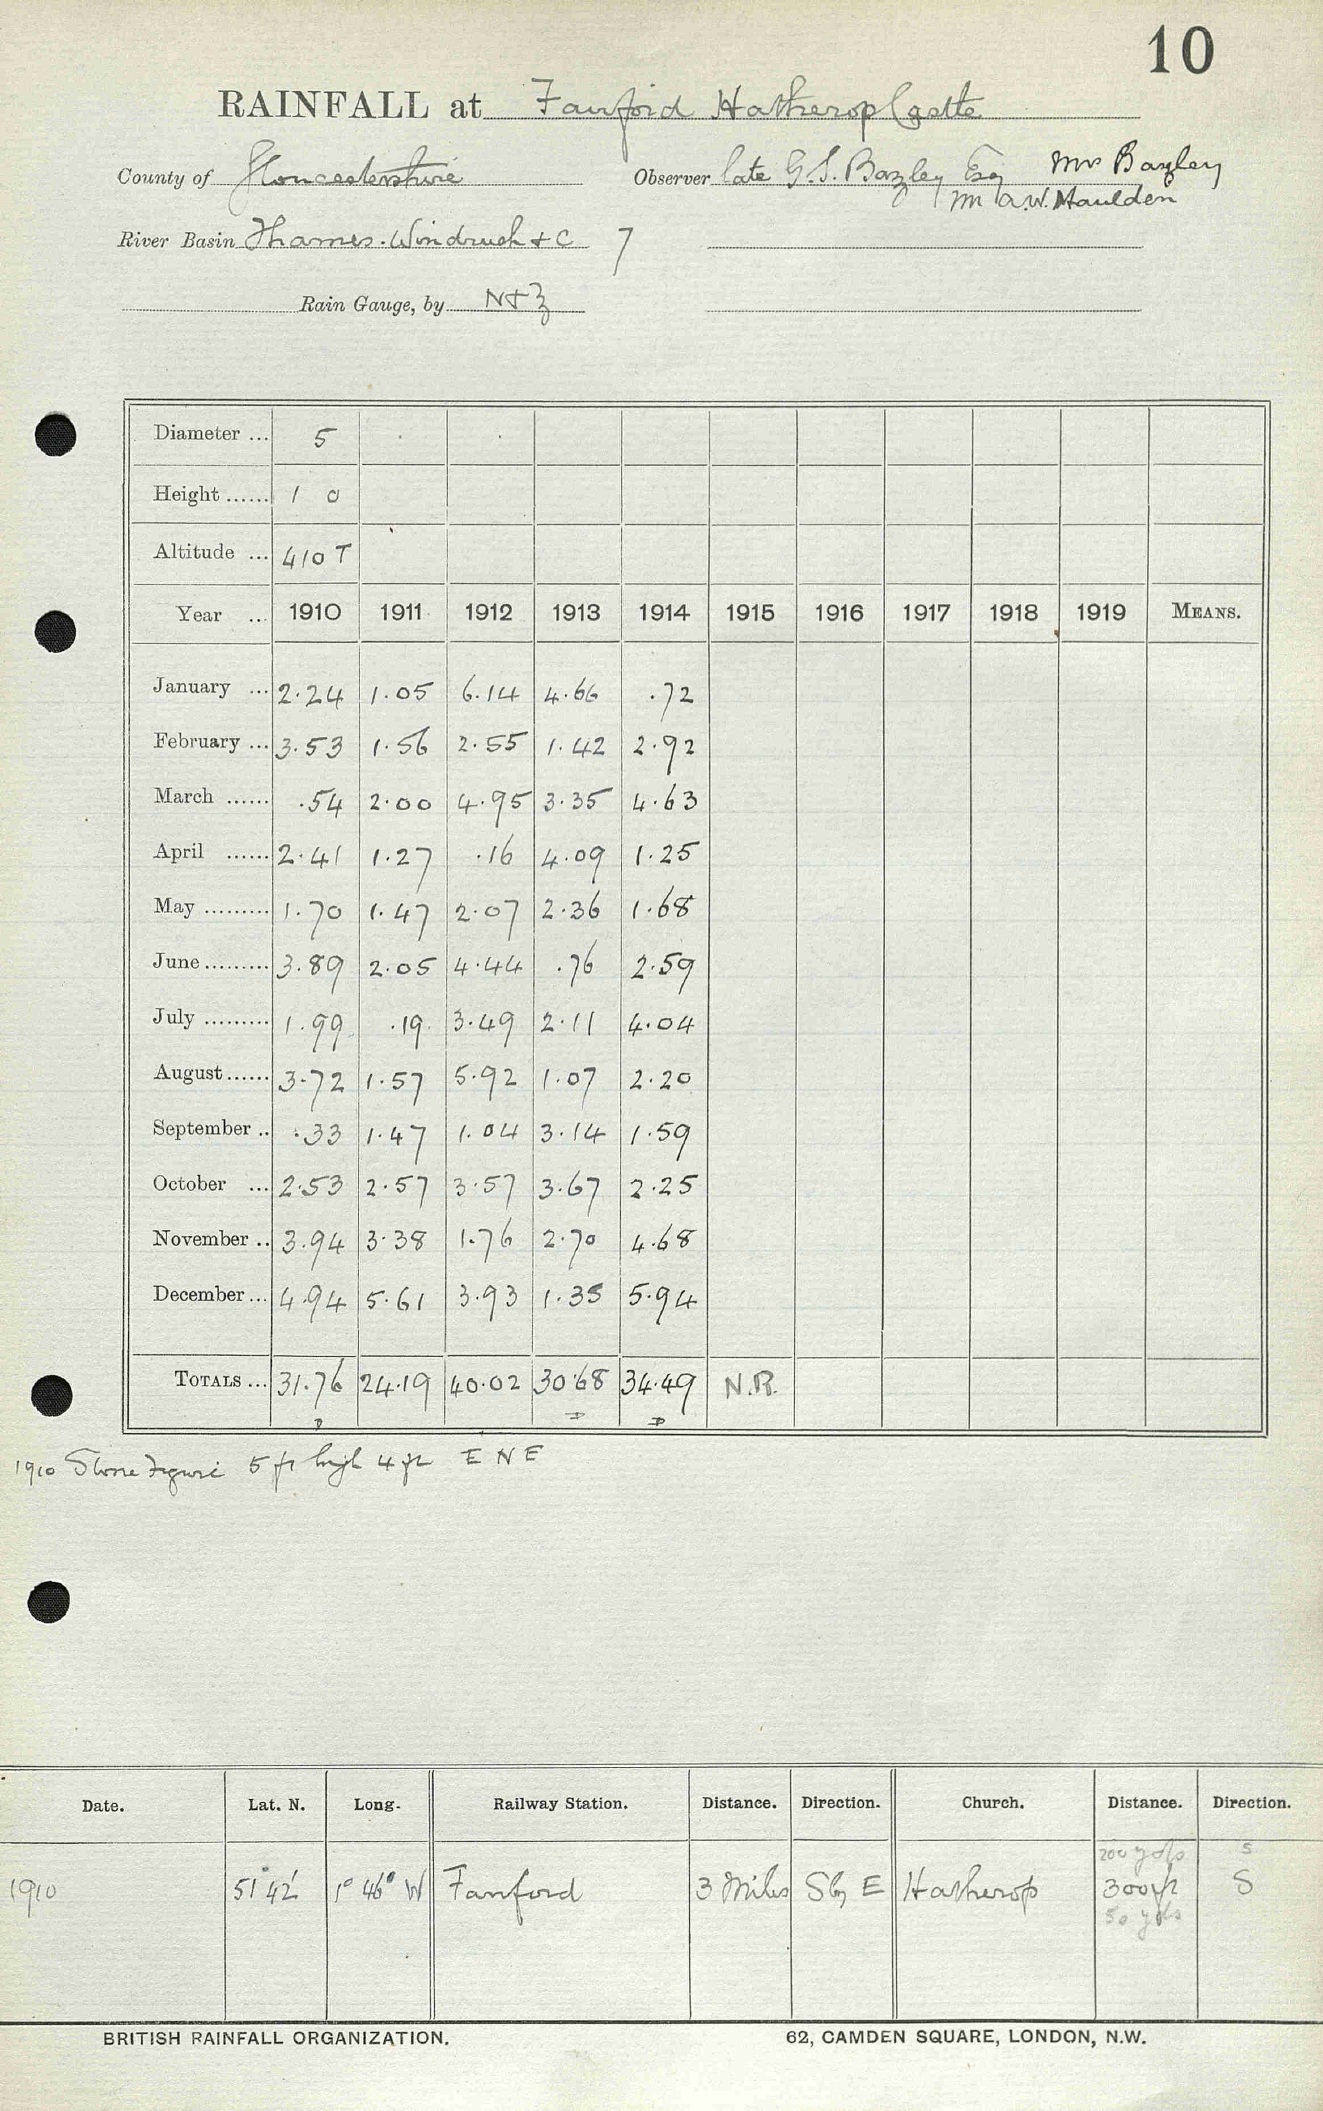 10
RAINFALL at Fairford Hatherop Castle
County of Gloucestershire Observer late G.S. Bazley Esq Mrs Bazley
Mr A.W. Maulden
River Basin Thames. Windrush & C 7
Rain Gauge, by N & Z
Diameter ... 5
Height ...... 1 0
Altitude ... 410 T
Year ... 1910 1911 1912 1913 1914 1915 1916 1917 1918 1919 MEANS.
January ... 2.24 1.05 6.14 4.66 .72
February ... 3.53 1.56 2.55 1.42 2.92
March ...... .54 2.00 4.95 3.35 4.63
April ...... 2.41 1.27 .16 4.09 1.25
May ......... 1.70 1.47 2.07 2.36 1.68
June ......... 3.89 2.05 4.44 .76 2.59
July ......... 1.99 .19 3.49 2.11 4.04
August ...... 3.72 1.57 5.92 1.07 2.20
September .. .33 1.47 1.04 3.14 1.59
October ... 2.53 2.57 3.57 3.67 2.25
November .. 3.94 3.38 1.76 2.70 4.68
December ... 4.94 5.61 3.93 1.35 5.94
TOTALS ... 31.76 24.19 40.02 30.68 34.49 N.R.
1910 Stone Figure 5 ft high 4 ft E N E
Date. Lat. N. Long. Railway Station. Distance. Direction. Church. Distance. Direction.
200 yds S
1910 51° 42' 1° 46' W Fairford 3 Miles S by E Hatherop 300 ft S
50 yds
BRITISH RAINFALL ORGANIZATION. 62, CAMDEN SQUARE, LONDON, N.W.